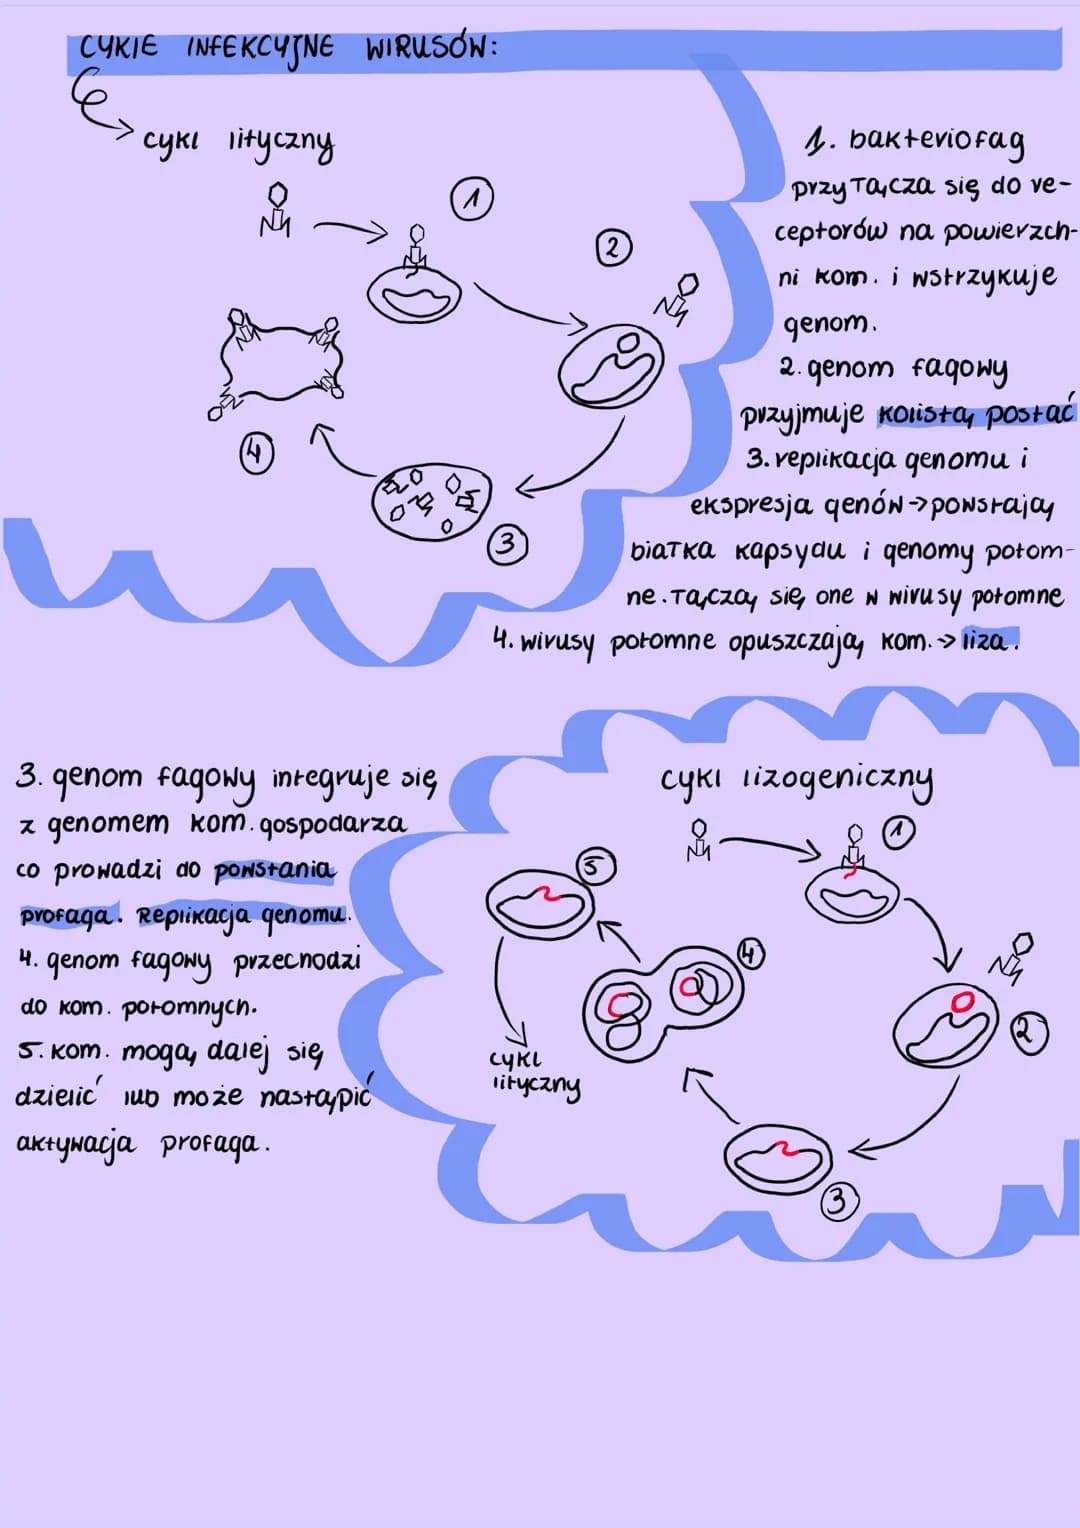 CYKLE INFEKCYJNE WIRUSÓW:
cykl lityczny
1
2
3
4
1. bakteriofag
przyłącza się do re-
ceptorów na powierzch-
ni kom. i wstrzykuje
genom.
2. genom fagowy
przyjmuje kolistą postać
3. replikacja genomu i
ekspresja genów → powstają
białka kapsydu i genomy potom-
ne. Łączą się one w wirusy potomne
4. wirusy potomne opuszczają kom. → liza.
cykl lizogeniczny
1
2
3
4
5
cykl
lityczny
3. genom fagowy integruje się
z genomem kom. gospodarza
co prowadzi do powstania
profaga. Replikacja genomu.
4. genom fagowy przechodzi
do kom. potomnych.
5. kom. mogą dalej się
dzielić lub może nastąpić
aktywacja profaga.